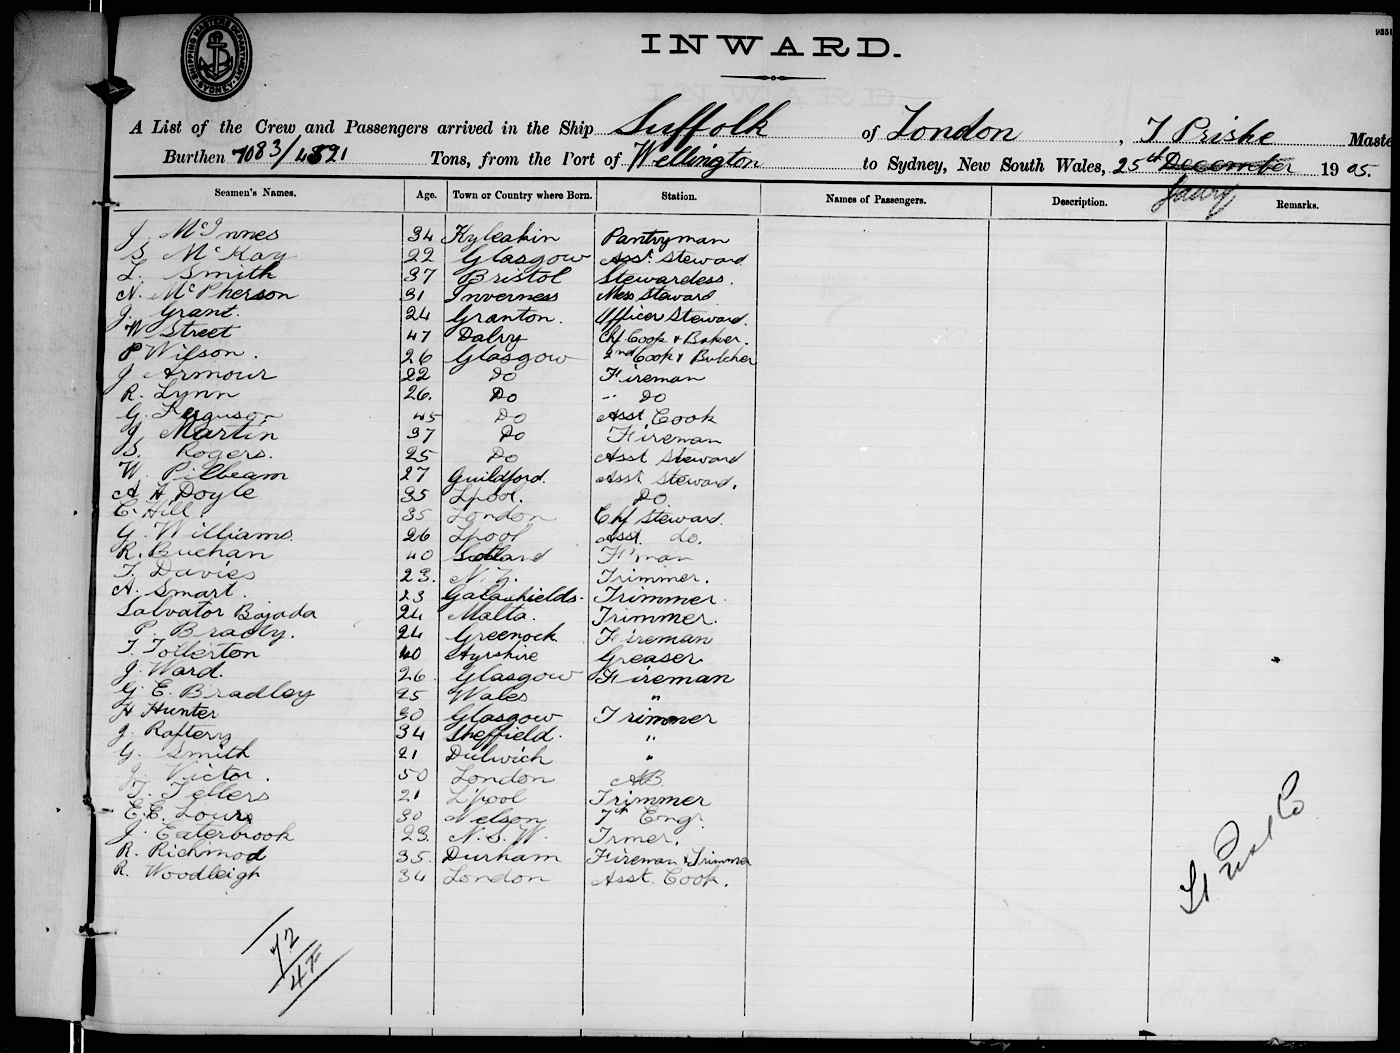 INWARD.
9351
SHIPPING MASTERS DEPARTMENT SYDNEY
A List of the Crew and Passengers arrived in the Ship Suffolk of London, T Priske Maste
Burthen 7083/4821 Tons, from the Port of Wellington to Sydney, New South Wales, 25th December 1905.
Jany
Seamen's Names. Age. Town or Country where Born. Station. Names of Passengers. Description. Remarks.
J. McInnes 34 Kyleakin Pantryman
S. McKay 22 Glasgow Asst. Steward
L. Smith 37 Bristol Stewardess.
N. McPherson 31 Inverness Mess Steward
J. Grant. 24 Granton. Officer Steward.
W Street 47 Dalry Chf Cook & Baker.
P Wilson. 26 Glasgow 2nd Cook & Butcher
J Armour 22 Do Fireman
R. Lynn 26. Do " Do
G. Ferguson 45 Do Asst. Cook
J. Martin 37 Do Fireman
S. Rogers. 25 Do Asst Steward
W. Pilbeam 27 Guildford. Asst Steward.
A. H. Doyle 35 Lpool. Do.
C. Hill 35 London Chf Steward.
G. Williams. 26 Lpool Asst. do.
R. Buchan 40 Scotland F'man
T. Davies 23. N.Z. Trimmer.
A. Smart. 23 Galashields. Trimmer.
Salvator Bajada 24 Malta. Trimmer.
P. Bradly. 24 Greenock Fireman
T. Tollerton 40 Ayrshire Greaser
J. Ward. 26. Glasgow Fireman
G. E. Bradley 25 Wales "
H Hunter 30 Glasgow Trimmer
J. Raftery 34 Sheffield. "
G. Smith 21 Dulwich "
J. Victor. 50 London AB.
T. Tellers 21 L'pool Trimmer
E.E. 30 Nelson 7th Engr.
J. Eaterbrook 23. N.S.W. Trmer.
R. Richmod 35. Durham Fireman & Trimmer
R. Woodleigh 34 London Asst. Cook.
72
47